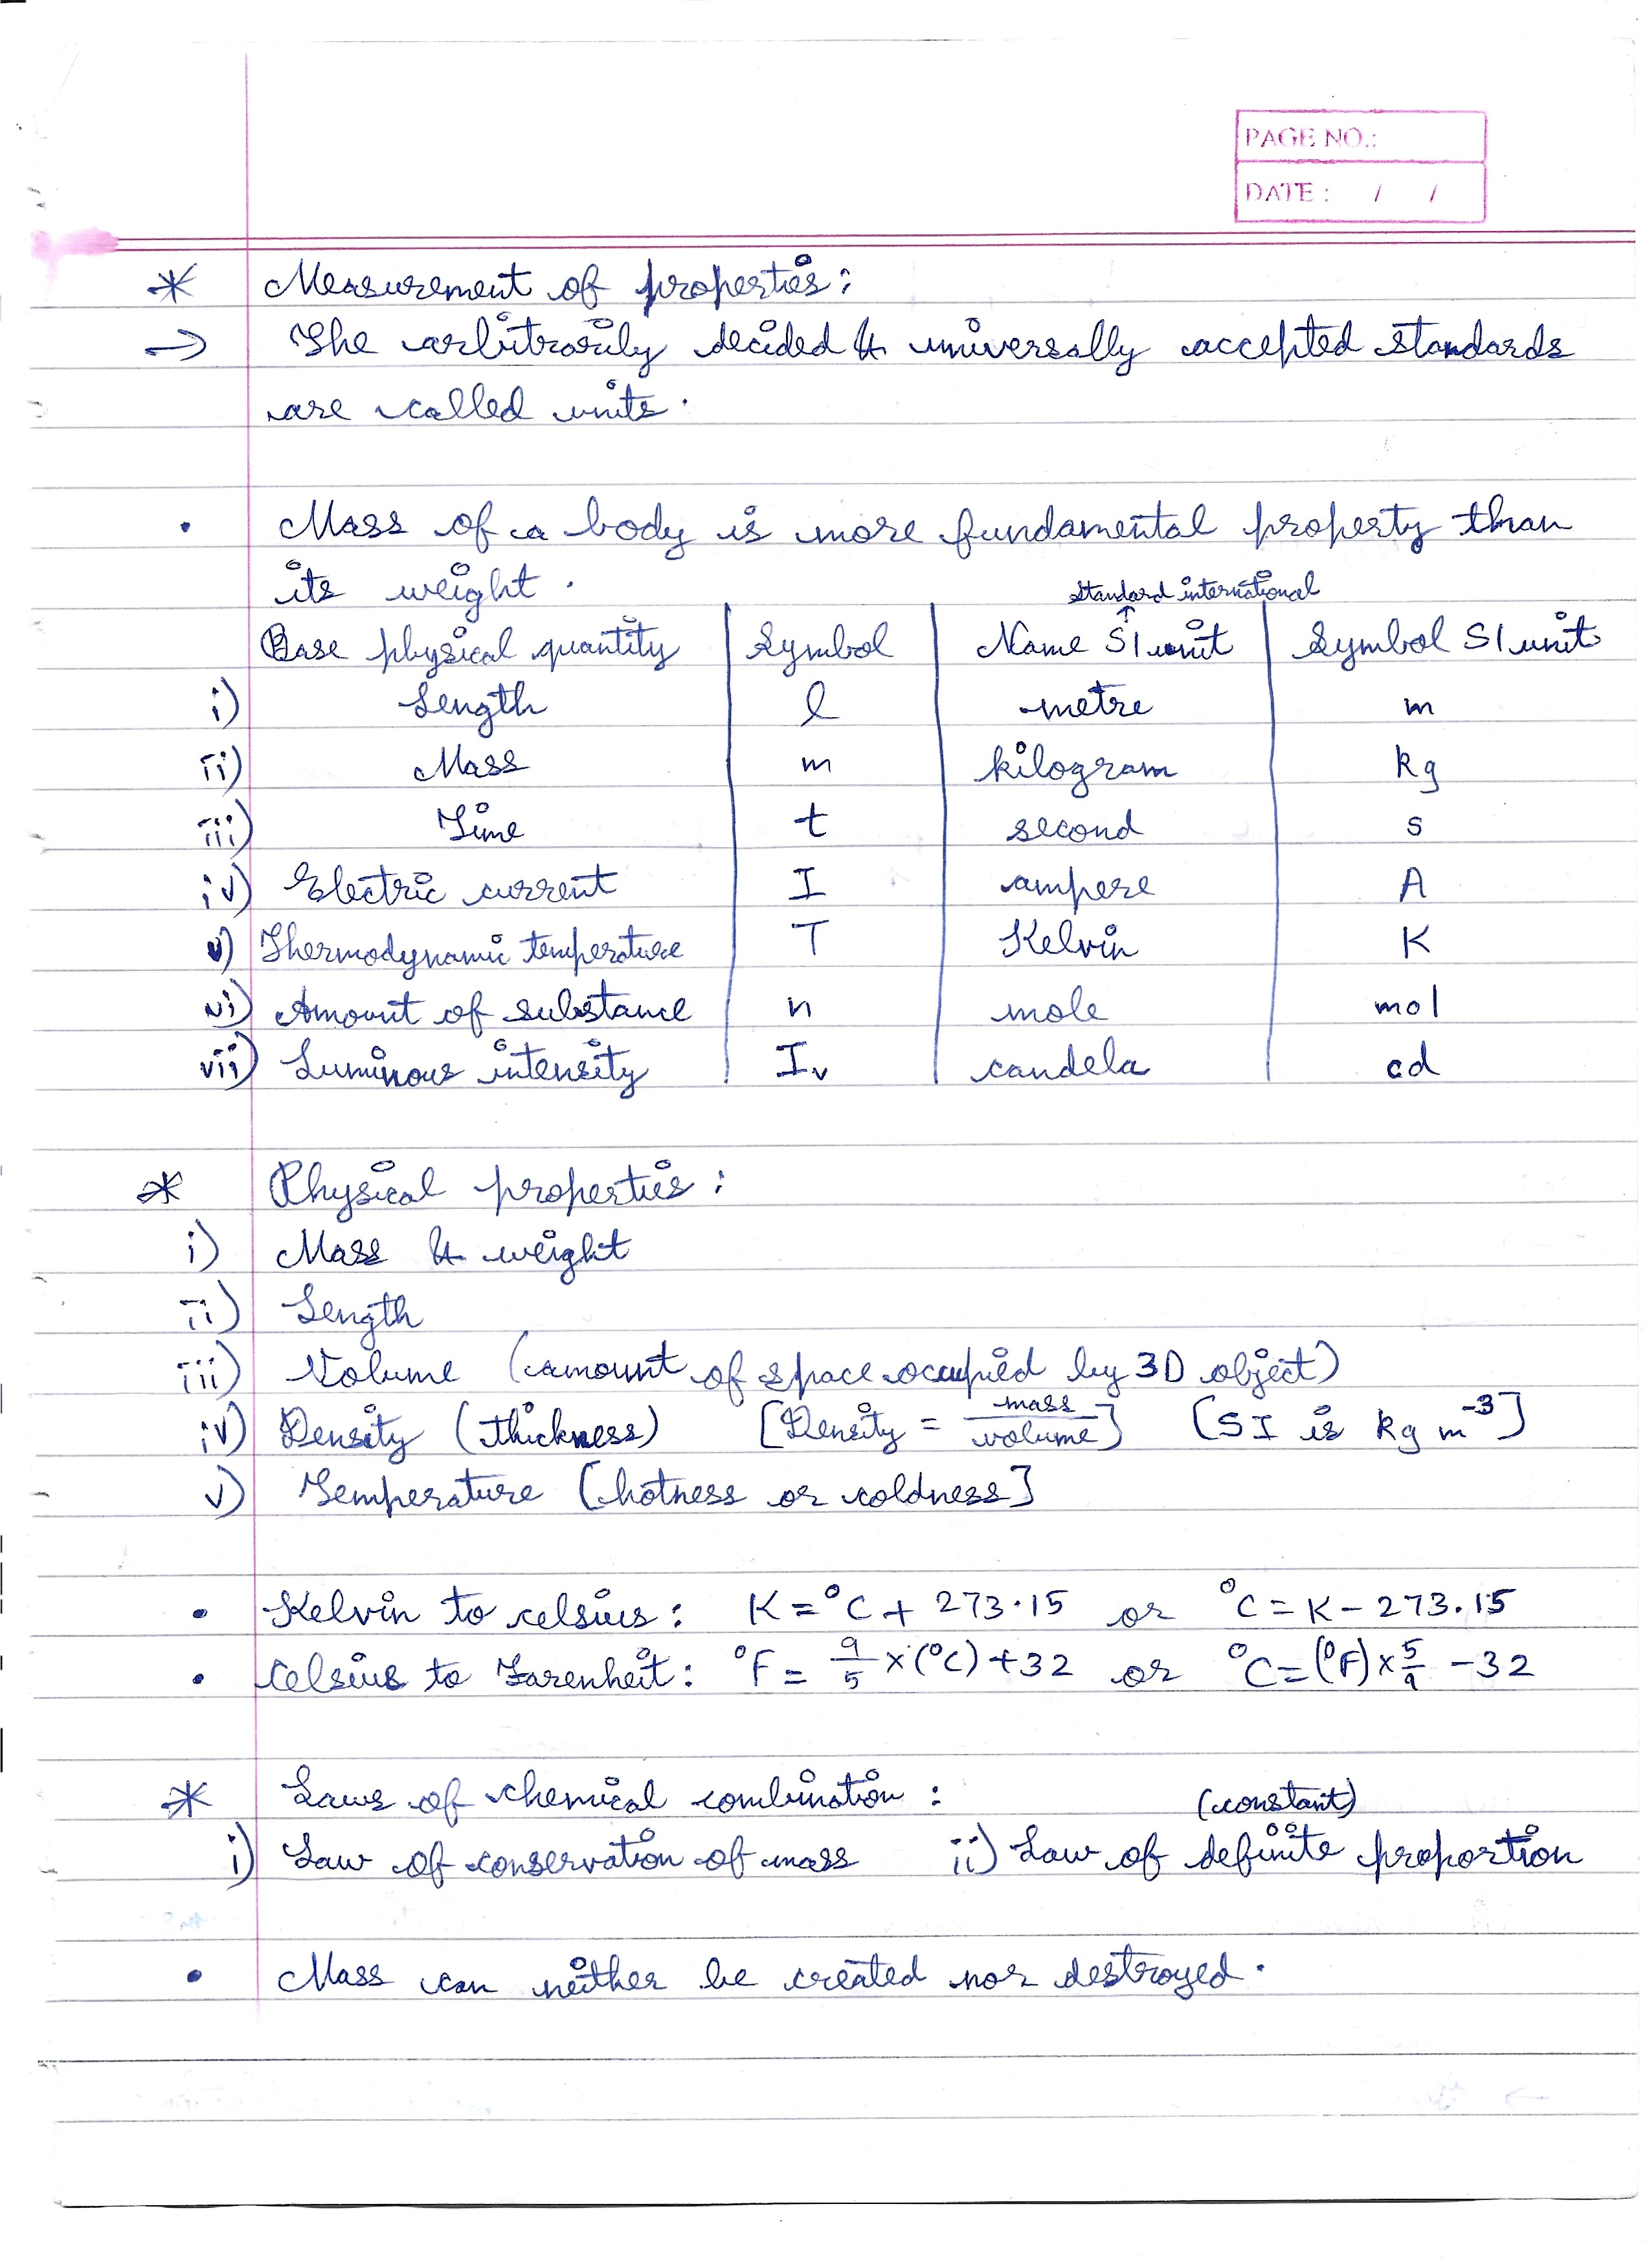 PAGE NO.:
DATE : / /
* Measurement of properties:
→ The arbitrarily decided & universally accepted standards
are called units.
• Mass of a body is more fundamental property than
its weight.
standard international
↑
Base physical quantity | Symbol | Name SI unit | Symbol SI unit
i) Length | l | metre | m
ii) Mass | m | kilogram | kg
iii) Time | t | second | s
iv) Electric current | I | ampere | A
v) Thermodynamic temperature | T | Kelvin | K
vi) Amount of substance | n | mole | mol
vii) Luminous intensity | Iv | candela | cd
* Physical properties:
i) Mass & weight
ii) Length
iii) Volume (amount of space occupied by 3D object)
iv) Density (thickness) [Density = mass/volume] [SI is kg m⁻³]
v) Temperature [hotness or coldness]
• Kelvin to celsius: K = °C + 273.15 or °C = K - 273.15
• Celsius to Farenheit: °F = 9/5 × (°C) + 32 or °C = (°F) × 5/9 - 32
* Laws of chemical combination :
(constant)
i) Law of conservation of mass ii) Law of definite proportion
• Mass can neither be created nor destroyed.